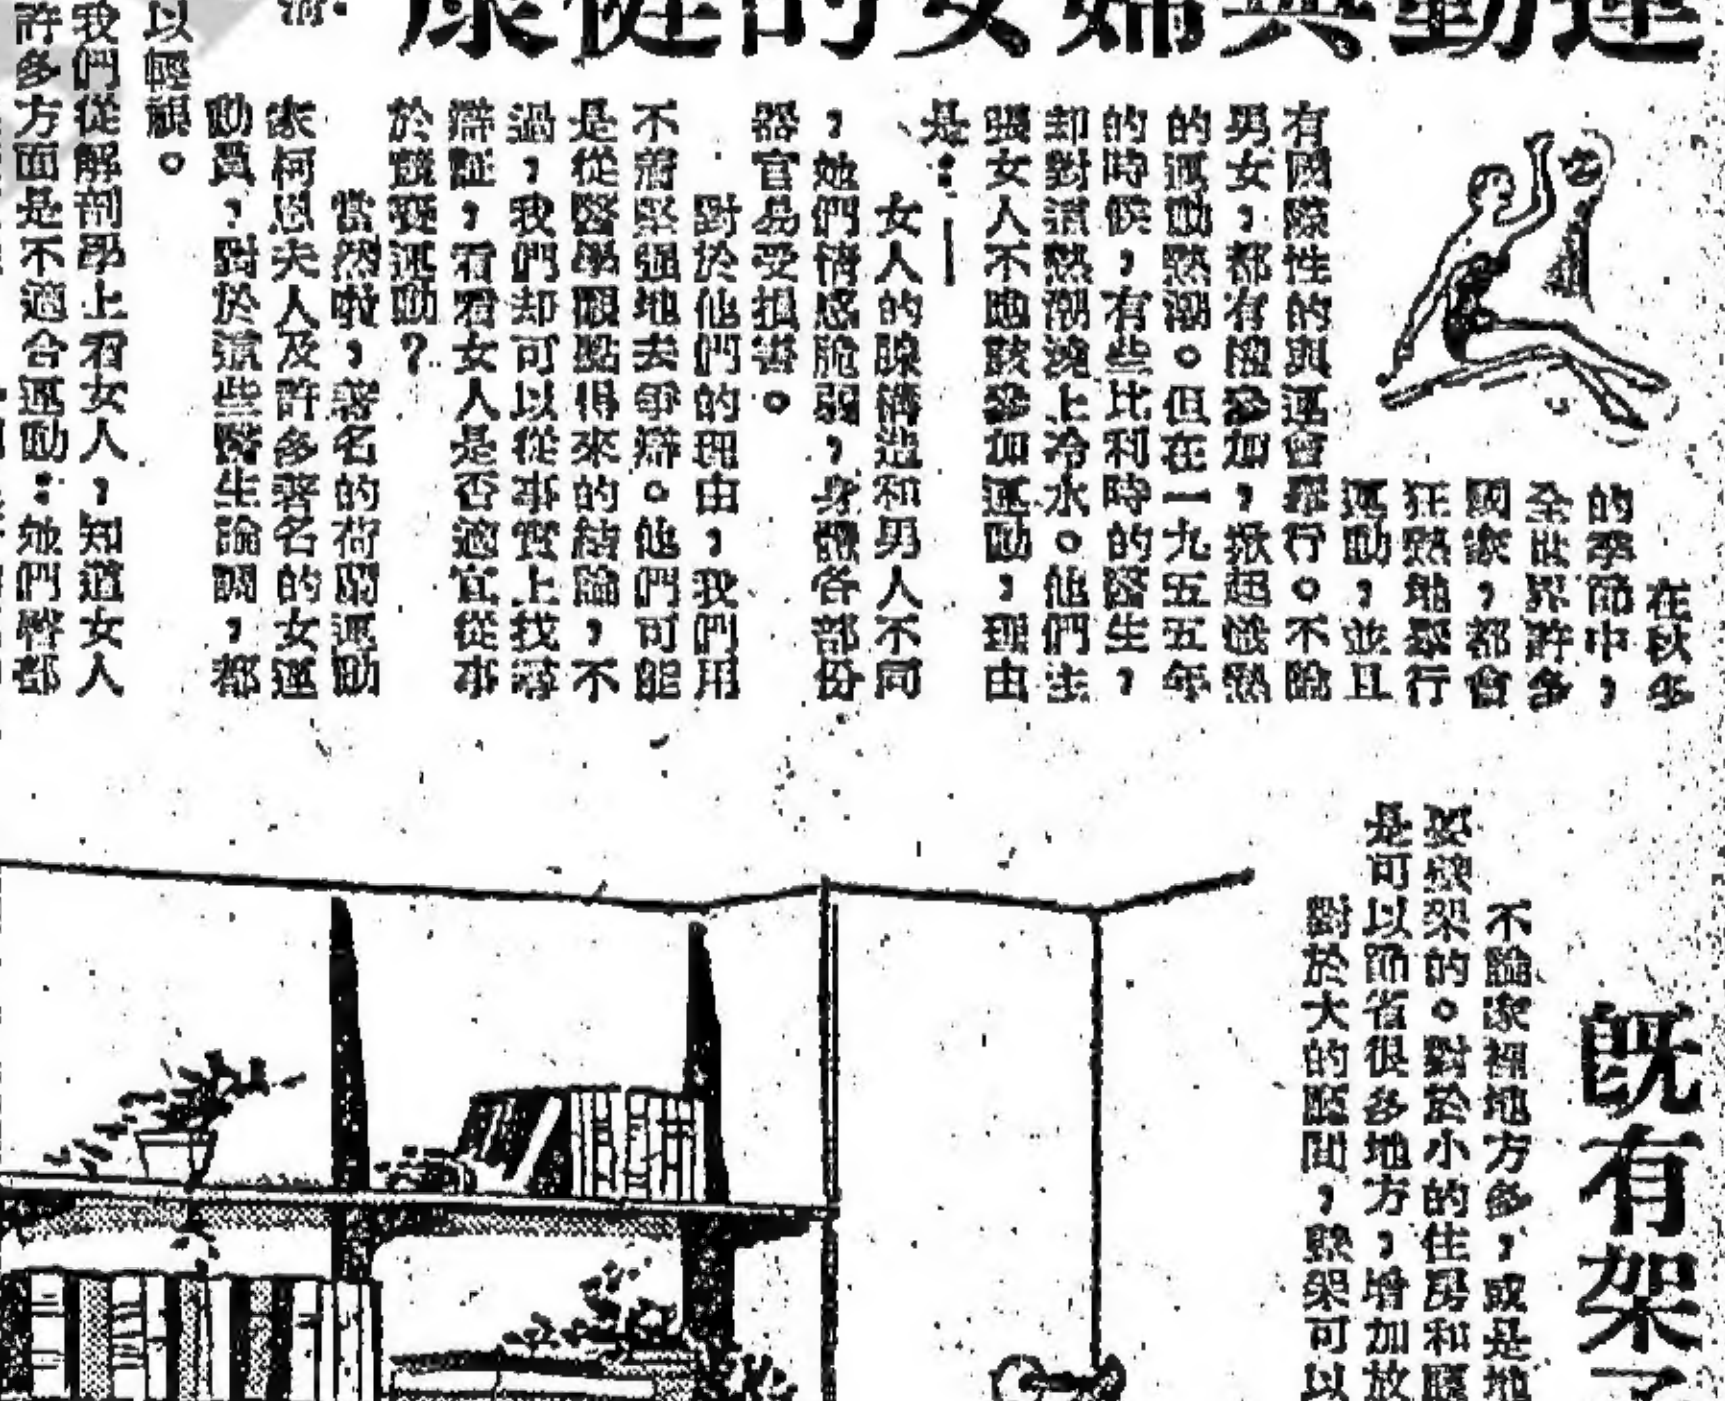 運動與婦女的健康
在秋冬
的季節中，
全世界許多
國家，都會
狂熱地舉行
運動，並且
有國際性的奧運會舉行。不論
男女，都有機參加，掀起熾熱
的運動熱潮。但在一九五五年
的時候，有些比利時的醫生，
却對這熱潮澆上冷水。他們主
張女人不應該參加運動，理由
是：—
女人的腺構造和男人不同
，她們情感脆弱，身體各部份
器官易受損害。
對於他們的理由，我們用
不着堅强地去爭辯。他們可能
是從醫學眼點得來的結論，不
過，我們却可以從事實上找尋
辯証，看看女人是否適宜從事
於競賽運動？
當然啦，著名的荷蘭運動
家柯恩夫人及許多著名的女運
動員，對於這些醫生論調，都
以輕視。
我們從解剖學上看女人，知道女人
許多方面是不適合運動：她們臀部
既有架子
不論家裡地方多，或是地
要壁架的。對於小的住房和廳
是可以節省很多地方，增加放
對於大的廳間，壁架可以